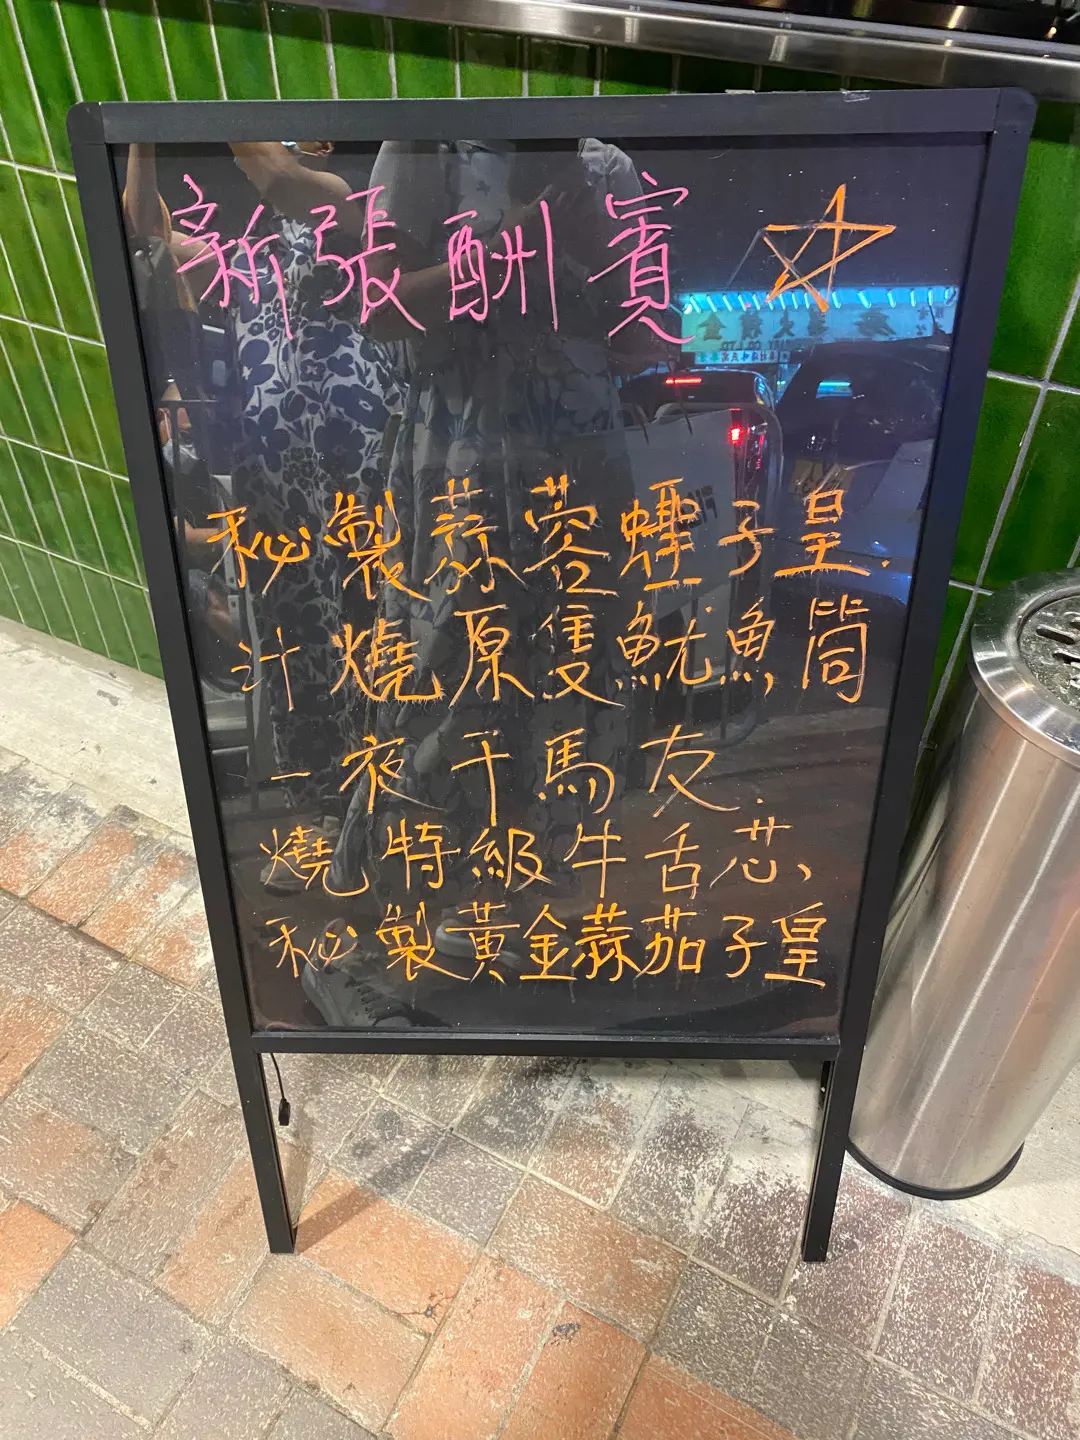 新張酬賓
秘製蒜蓉蟶子皇
汁燒原隻魷魚筒
一夜干馬友
燒特級牛舌芯
秘製黃金蒜茄子皇